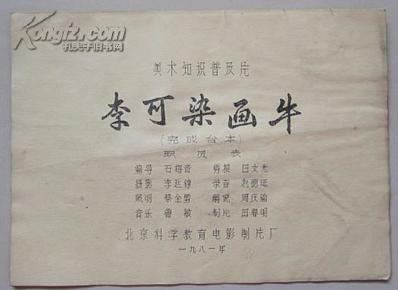 孔夫子旧书网
Kongfz.com
美术知识普及片
李可染画牛
(完成台本)
职员表
编导 石梅音 剪接 田文光
摄影 李廷铮 录音 赵德
照明 蔡金鹏 解说 周庆瑜
音乐 雷敏 制片 田春明
北京科学教育电影制片厂
一九八一年